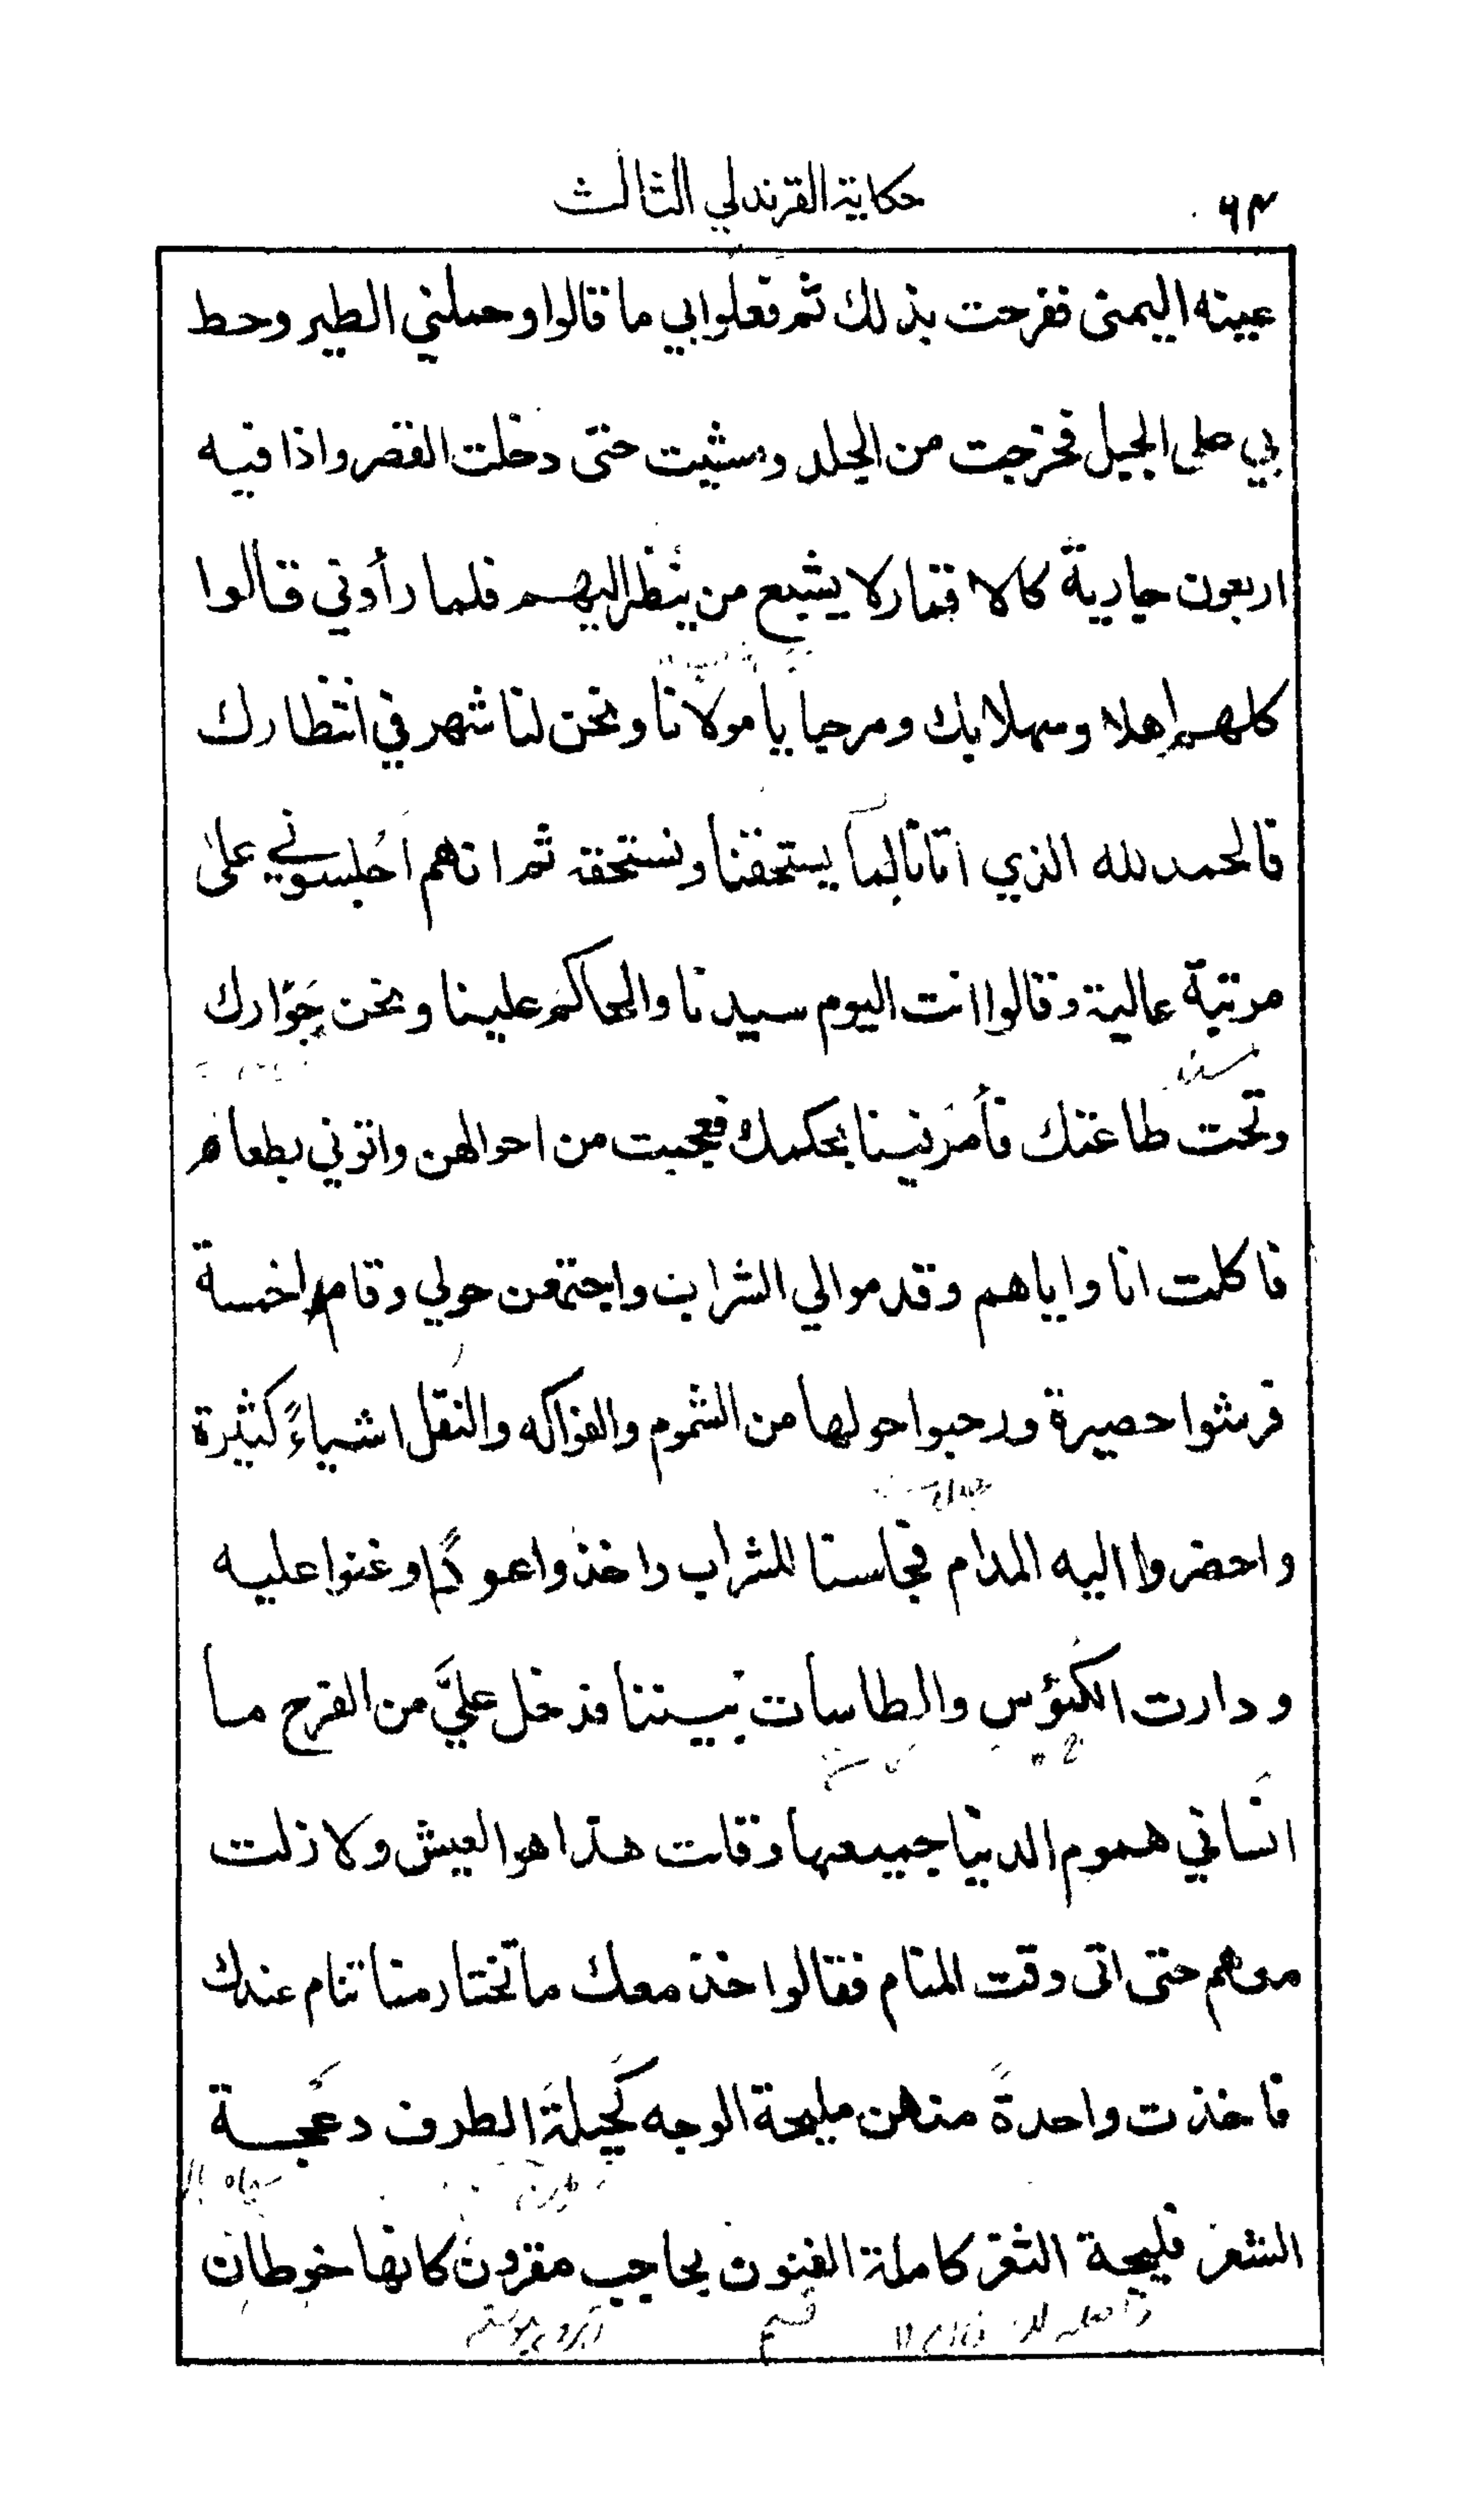 ٦٣
حكاية القرندلي الثالث
عينه اليمنى ففرحت بذلك ثم فعلوا بي ما قالوا وحملني الطير وحط
بي على الجبل فخرجت من الجلد ومشيت حتى دخلت القصر واذا فيه
اربعون جارية كالاقمار لا يشبع من ينظر اليهم فلما رأوني قالوا
كلهم اهلا وسهلا بك ومرحبا يا مولانا ونحن لنا شهر في انتظارك
فالحمد لله الذي اتانا بما يستحقنا ونستحقه ثم انهم اجلسوني على
مرتبة عالية وقالوا انت اليوم سيدنا والحاكم علينا ونحن جوارك
وتحت طاعتك فأمر فينا بحكمك فعجبت من احوالهن واتوني بطعام
فاكلت انا واياهم وقدموا لي الشراب واجتمعن حولي وقام خمسة
فرشوا حصيرة ورحبوا حولها من الشموم والفواكه والنقل اشياءً كثيرة
واحضروا اليه المدام فجلسنا للشراب واخذوا عودًا وغنوا عليه
ودارت الكؤس والطاسات بيننا فدخل عليَّ من الفرح ما
انساني هموم الدنيا جميعها وقلت هذا هو العيش ولا زلت
معهم حتى اتى وقت المنام فقالوا خذ معك ما تختار منا تنام عندك
فاخذت واحدةً منهن مليحة الوجه كحيلة الطرف دعجة
الشعر فليجة الثغر كاملة الفنون بحاجب مقرون كانها خوطان